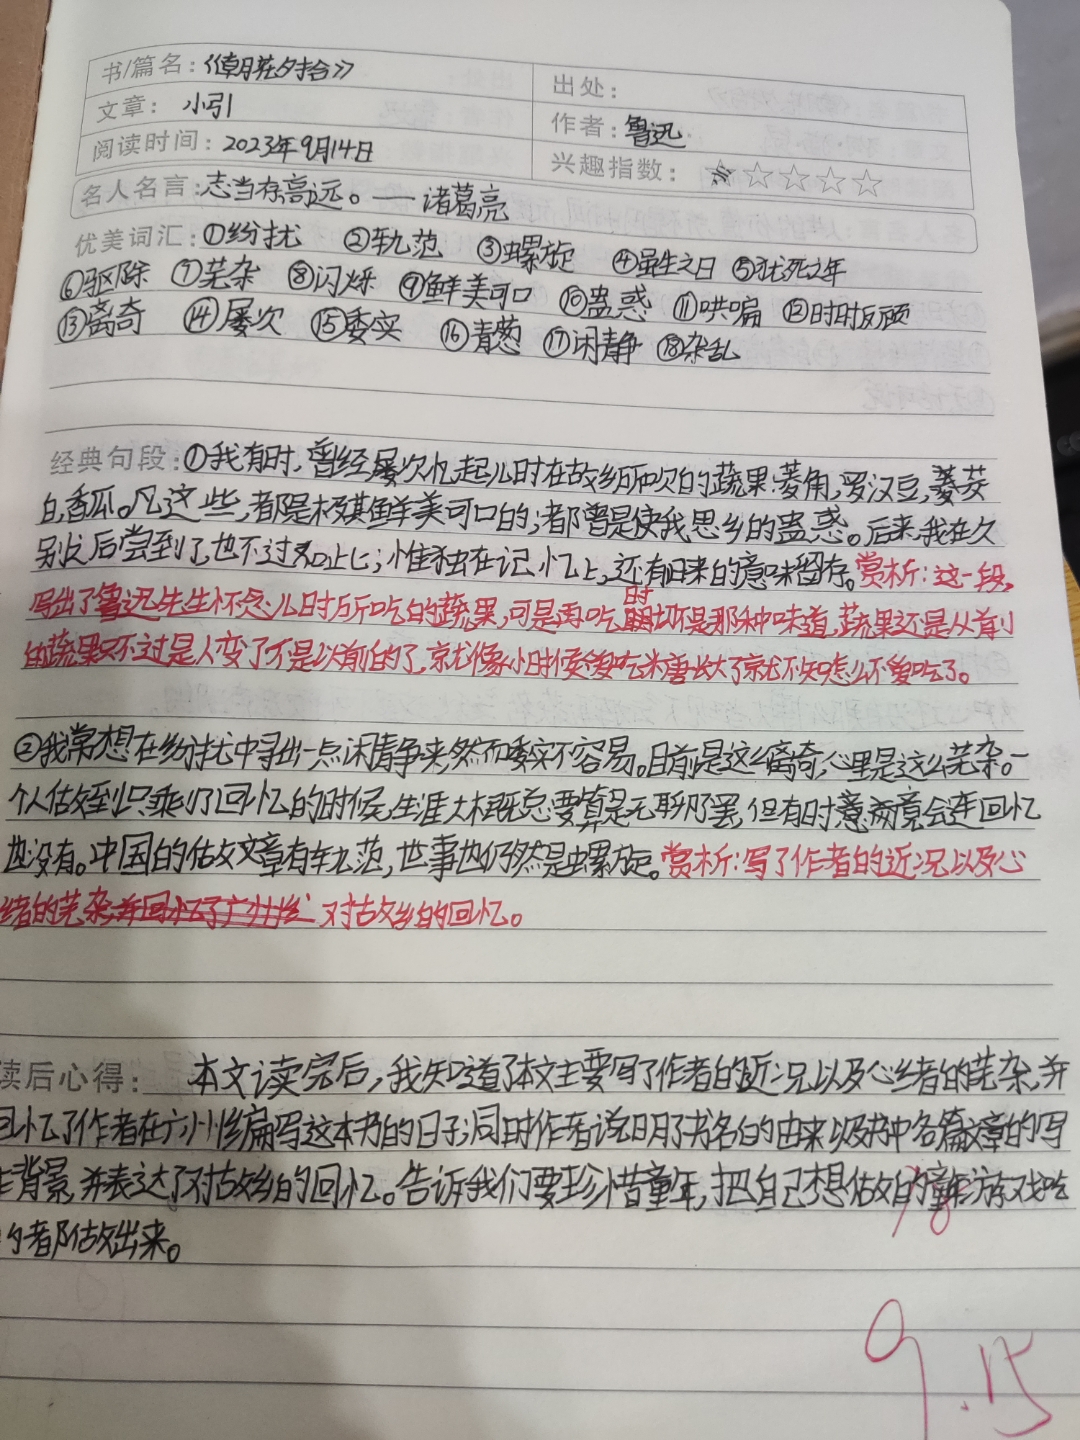 书/篇名：《朝花夕拾》 出处：
文章： 小引 作者：鲁迅
阅读时间：2023年9月14日 兴趣指数：★☆☆☆☆
名人名言：志当存高远。——诸葛亮
优美词汇：①纷扰 ②轨范 ③螺旋 ④虽生之日 ⑤犹死之年
⑥驱除 ⑦芜杂 ⑧闪烁 ⑨鲜美可口 ⑩蛊惑 ⑪哄骗 ⑫时时反顾
⑬离奇 ⑭屡次 ⑮委实 ⑯青葱 ⑰闲静 ⑱杂乱
经典句段：①我有时，曾经屡次忆起儿时在故乡所吃的蔬果：菱角，罗汉豆，茭
白，香瓜。凡这些，都是极其鲜美可口的；都曾是使我思乡的蛊惑。后来，我在久
别之后尝到了，也不过如此；惟独在记忆上，还有旧来的意味留存。赏析：这一段，
写出了鲁迅先生怀念儿时所吃的蔬果，可是再吃时却不是那种味道，蔬果还是从前
的蔬果只不过是人变了不是以前的了，就像小时候爱吃米唐长大了就不知怎么不爱吃了。
②我常想在纷扰中寻出一点闲静来，然而委实不容易。目前是这么离奇，心里是这么芜杂。一
个人做到只剩了回忆的时候，生涯大概总要算是无聊了罢，但有时竟会连回忆
也没有。中国的做文章有轨范，世事也仍然是螺旋。赏析：写了作者的近况以及心
绪的芜杂，对故乡的回忆。
读后心得： 本文读完后，我知道了本文主要写了作者的近况以及心绪的芜杂，并
回忆了作者在广州编写这本书的日子；同时作者说明了书名的由来以及书中各篇文章的写
作背景，并表达了对故乡的回忆。告诉我们要珍惜童年，把自己想做的童年游戏吃
的都做出来。
9.15